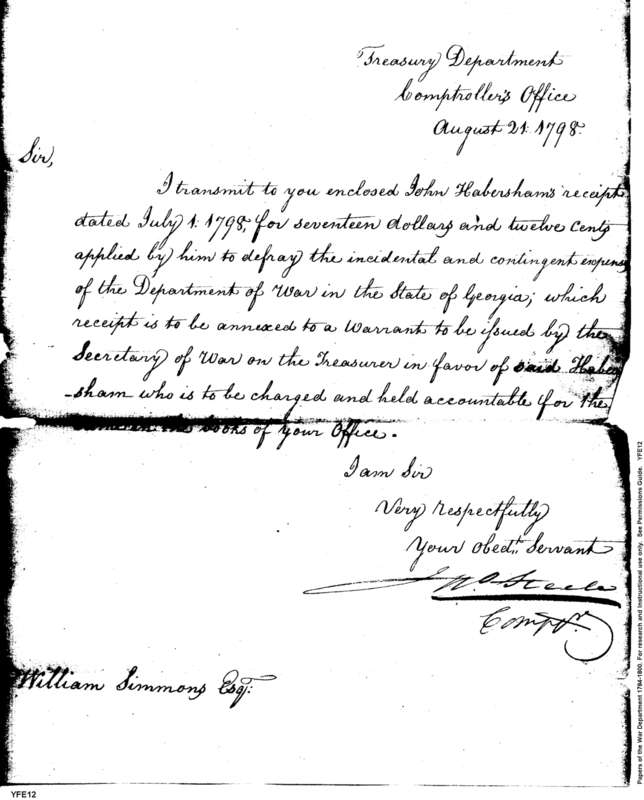 Treasury Department
Comptroller's Office
August 21. 1798.
Sir,
I transmit to you enclosed John Habersham's receipt
dated July 1. 1798, for seventeen dollars and twelve cents
applied by him to defray the incidental and contingent expens
of the Department of War in the State of Georgia; which
receipt is to be annexed to a Warrant to be issued by the
Secretary of War on the Treasurer in favor of said Haber
-sham who is to be charged and held accountable for the
same in the books of your Office.
I am Sir
Very respectfully
Your Obedt. Servant
Jno. Steele
Compr.
William Simmons Esqr.
YFE12
Papers of the War Department 1784-1800. For research and instructional use only. See Permissions Guide. YFE12